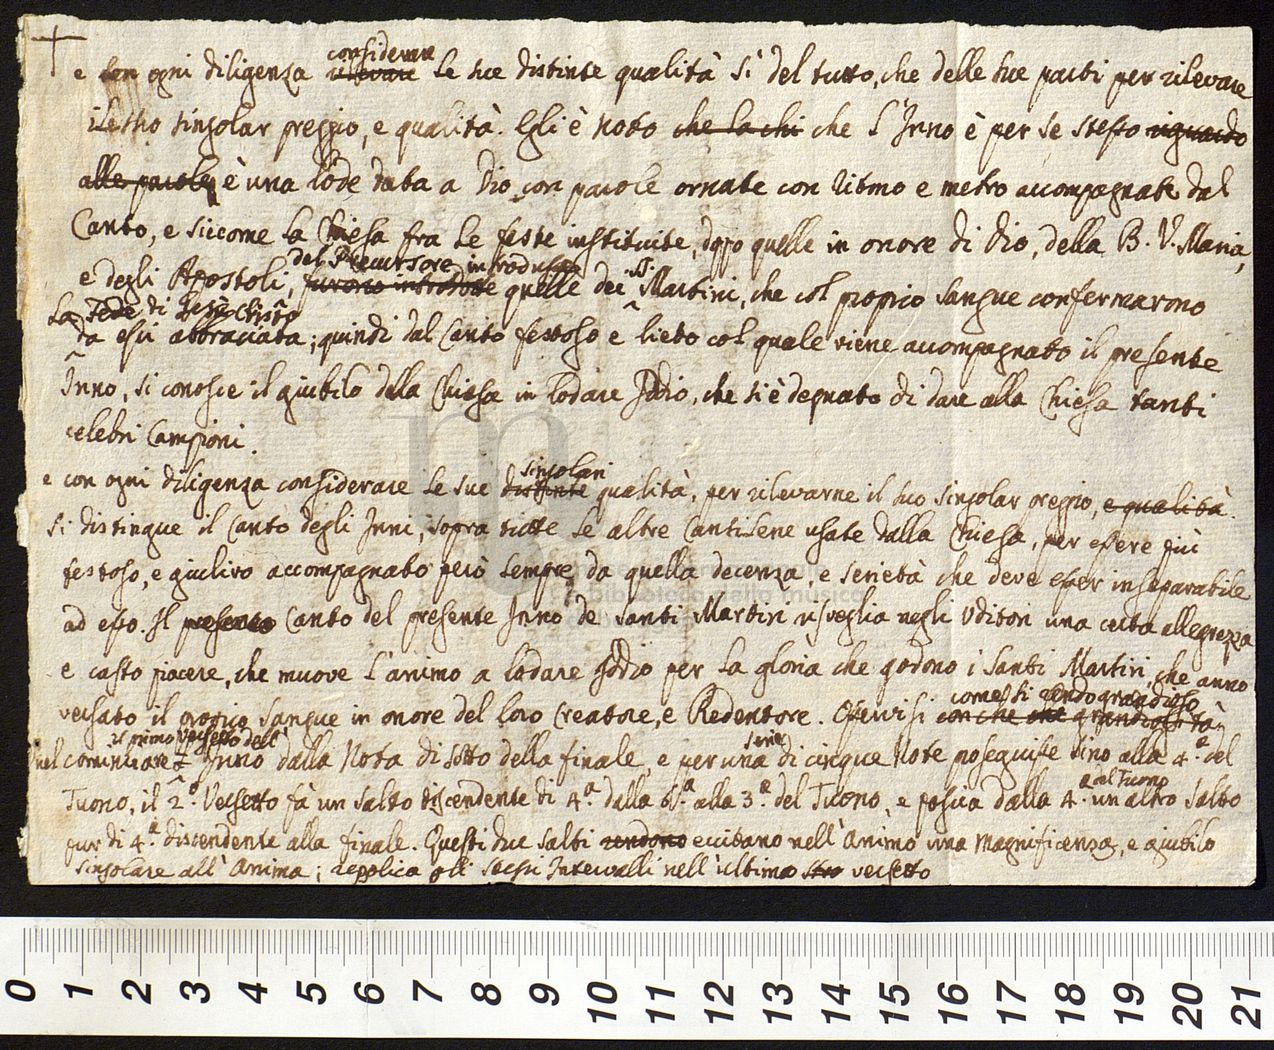 considerare
e con ogni diligenza rilevare le sue distinte qualità sì del tutto, che delle sue parti per rilevare
il suo singolar preggio, e qualità. Egli è noto che la chi che l'Inno è per se stesso riguardo
alle parole, è una lode data a Dio con parole ornate con ritmo e metro accompagnate dal
Canto, e siccome la Chiesa fra le feste instituite, dopo quelle in onore di Dio, della B. V. Maria,
del Precursore introdusse
e degli Apostoli, furono introdotte quelle dei SS. Martiri, che col proprio sangue confermarono
la Fede di Gesù Christo
da essi abbraciata; quindi dal Canto festoso e lieto col quale viene accompagnato il presente
Inno, si conosce il giubilo della Chiesa in lodare Iddio, che si è degnato di dare alla Chiesa tanti
celebri Campioni.
singolari
e con ogni diligenza considerare le sue distinte qualità, per rilevarne il suo singolar preggio, e qualità.
Si distingue il Canto degli Inni, sopra tutte le altre Cantilene usate dalla Chiesa, per essere più
festoso, e giulivo accompagnato però sempre da quella decenza, e serietà che deve esser inseparabile
ad esso. Il presente Canto del presente Inno de Santi Martiri risveglia negli Uditori una certa allegrezza
e casto piacere, che muove l'animo a lodare Iddio per la gloria che godono i Santi Martiri, che anno
versato il proprio Sangue in onore del loro Creatore, e Redentore. Osservisi con che che grandiosità
come si rendo grandioso
il primo versetto dell' serie
nel cominciare Inno dalla Nota di sotto della finale, e per una di cinque Note poseguisse sino alla 4.ª del
Tuono, il 2.º Versetto fà un salto discendente di 4.ª dalla 6.ª alla 3.ª del Tuono, e poscia dalla 4.ª un altro salto
del Tuono
pur di 4.ª discendente alla finale. Questi due salti rendono eccitano nell'Animo una magnificenza, e giubilo
singolare all'Anima; repplica gli stessi Intervalli nell'ultimo versetto
0 1 2 3 4 5 6 7 8 9 10 11 12 13 14 15 16 17 18 19 20 21